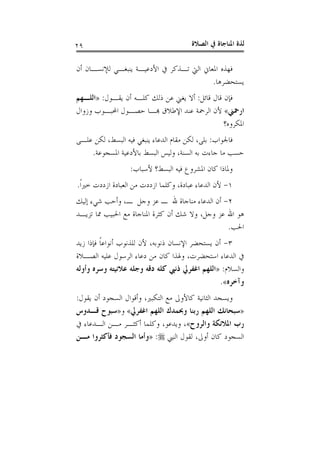 لذة المناجاة في الصلاة
٢٩
فهذه المعاني التي تذكر في الأدعية ينبغي للإنسان أن
يستحضرها.
فإن قال قائل: ألا يغني عن ذلك كله أن يقول: «اللهم
ارحمني» لأن الرحمة عند الإطلاق بها حصول المحبوب وزوال
المكروه؟
فالجواب: بلى، لكن مقام الدعاء ينبغي فيه البسط، لكن على
حسب ما جاءت به السنة، وليس البسط بالأدعية المسجوعة.
ولماذا كان المشروع فيه البسط؟ لأسباب:
١- لأن الدعاء عبادة، وكلما ازددت من العبادة ازددت خيراً.
٢- أن الدعاء مناجاة لله ـ عز وجل ـ، وأحب شيء إليك
هو الله عز وجل، ولا شك أن كثرة المناجاة مع الحبيب مما تزيد
الحب.
٣- أن يستحضر الإنسان ذنوبه، لأن للذنوب أنواعاً فإذا زيد
في الدعاء استحضرت، ولهذا كان من دعاء الرسول عليه الصلاة
والسلام: «اللهم اغفر لي ذنبي كله دقه وجله علانيته وسره وأوله
وآخره».
ويسجد الثانية كالأولى مع التكبير، وأقوال السجود أن يقول:
«سبحانك اللهم ربنا وبحمدك اللهم اغفر لي» و«سبوح قدوس
رب الملائكة والروح»، ويدعو، وكلما أكثر من الدعاء في
السجود كان أولى، لقول النبي ﷺ: «وأما السجود فأكثروا من